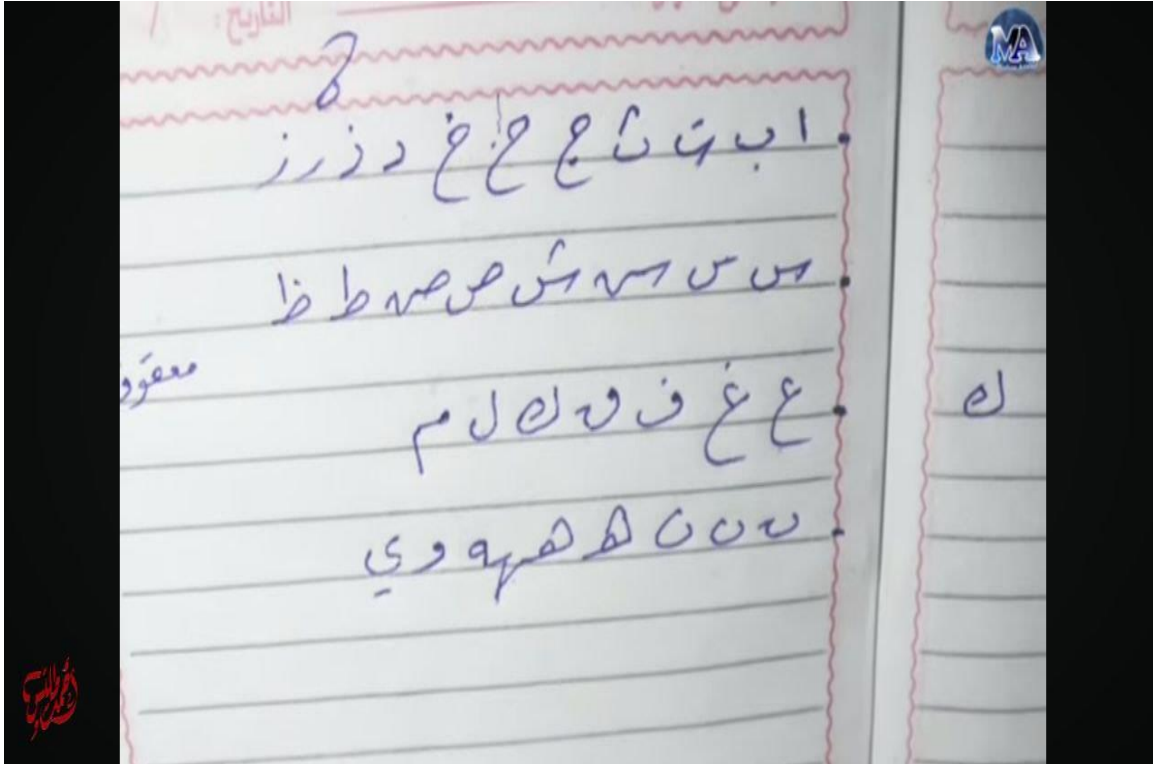 التاريخ: /
ا ب ت ث ج ح خ د ذ ر ز
س س س ش ص ص ط ظ
معقوف
ع غ ف ق ك ل م
ك
ن ن ن ه ه ه و ي
MA